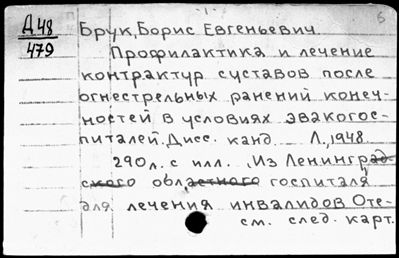 Д 48
479
Брук, Борис Евгеньевич.
Профилактика и лечение
контрактур суставов после
огнестрельных ранений конеч-
ностей в условиях эвакогос-
питалей. Дисс. канд. Л., 1948.
290 л. с илл. Из Ленинград-
ского областного госпиталя
для лечения инвалидов Оте-
см. след. карт.